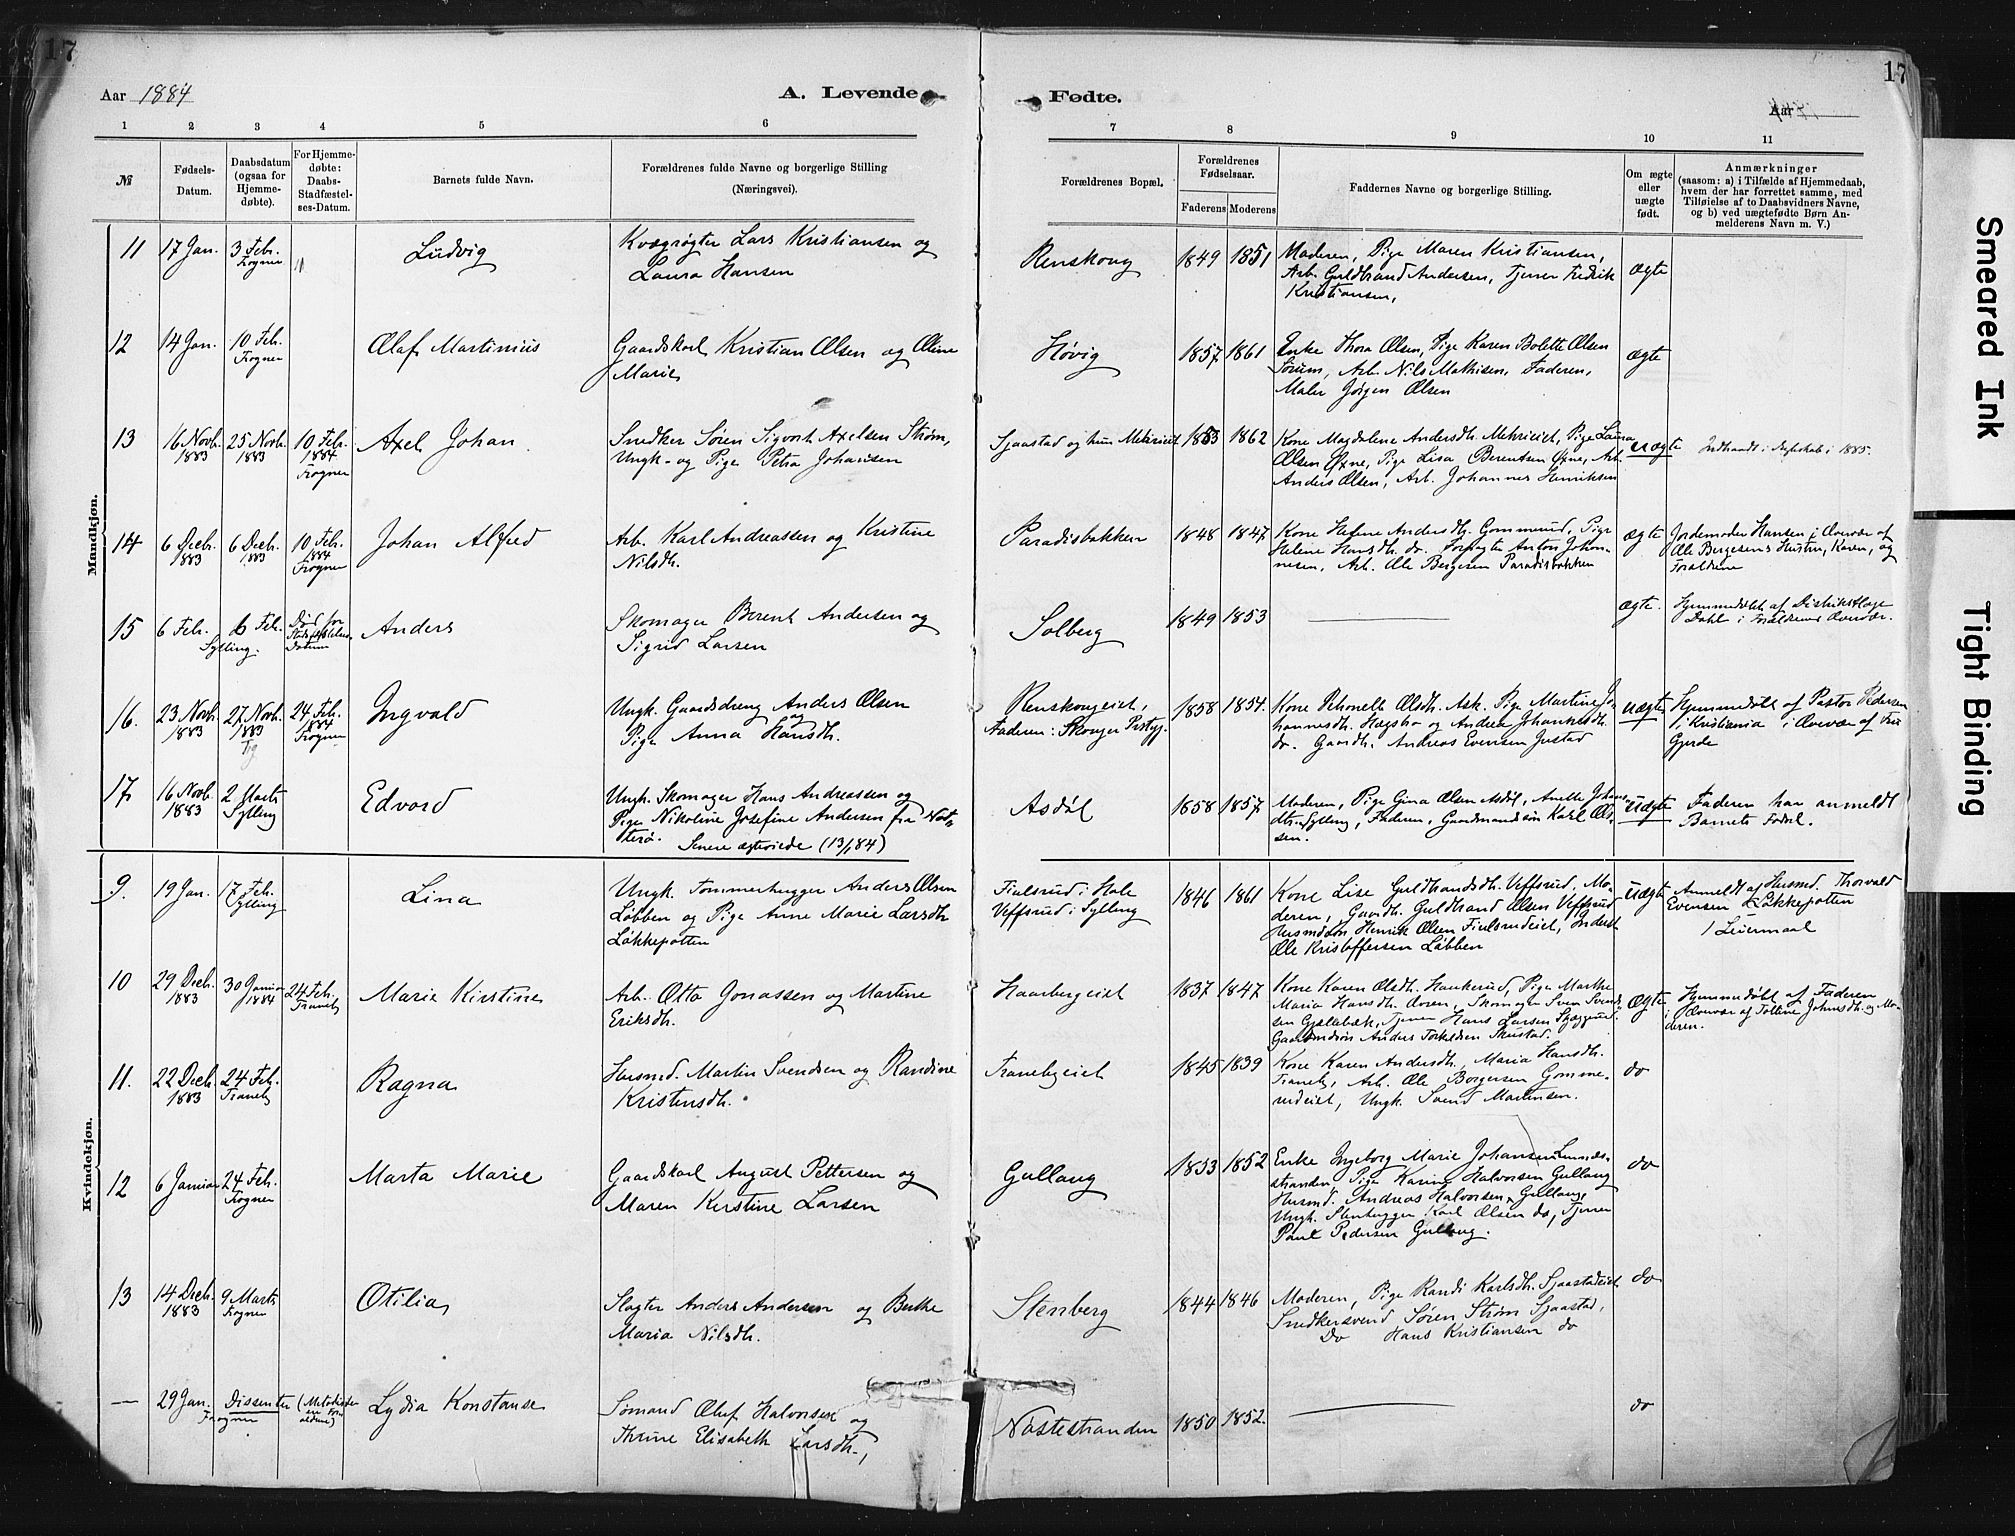 17
17
Aar 1884
A. Levende
Fødte.
Aar
1 2 3 4 5 6 7 8 9 10 11
№
Fødsels-
Datum.
Daabsdatum
(ogsaa for
Hjemme-
døbte).
For Hjemme-
døbte:
Daabs-
Stadfæstel-
ses-Datum.
Barnets fulde Navn.
Forældrenes fulde Navne og borgerlige Stilling
(Næringsvei).
Forældrenes Bopæl.
Forældrenes
Fødselsaar.
Faderens Moderens
Faddernes Navne og borgerlige Stilling.
Om ægte
eller
uægte
født.
Anmærkninger
(saasom: a) i Tilfælde af Hjemmedaab,
hvem der har forrettet samme, med
Tilføielse af to Daabsvidners Navne,
og b) ved uægtefødte Børn An-
melderens Navn m. V.)
Mandkjøn.
11 17 Jan. 3 Feb. Frogner
Ludvig
Kvægrøgter Lars Kristiansen og
Laura Hansen
Renskoug
1849 1851
Moderen, Pige Maren Kristiansen,
Arb. Guldbrand Andersen, Tjener Fredrik
Kristiansen,
ægte
12 14 Jan. 10 Feb. Frogner
Olaf Martinius
Gaardskarl Kristian Olsen og Oline
Marie
Høvig
1857 1861
Enke Thora Olsen, Pige Karen Bolette Olsen
Sørum, Arb. Nils Mathisen, Faderen,
Maler Jørgen Olsen
ægte
13 16 Novb. 1883 25 Novb. 1883 10 Feb. 1884 Frogner
Axel Johan
Snedker Søren Sigvart Axelsen Strøm,
Ungk. og Pige Petra Johansen
Sjaastad og hun Mehrieiet
1853 1862
Kone Magdalene Andersdh. Mehrieiet, Pige Laura
Olsen Øxne, Pige Lisa Berentsen Øxne, Arb.
Anders Olsen, Arb. Johannes Henriksen
uægte
Indtraadt i Ægteskab i 1885.
14 6 Decb. 1883 6 Decb. 1883 10 Feb. 1884 Frogner
Johan Alfred
Arb. Karl Andreassen og Kristine
Nilsdh.
Paradisbakken
1848 1847
Kone Helene Andersdh. Gommerud, Pige
Helene Hansdh. do. Forpagter Anton Johan-
nesen, Arb. Ole Bergesen Paradisbakken
ægte
Jordemoder Hansen i Overvær af
Ole Bergesens Hustru, Karen, og
Forældrene
15 6 Feb. 6 Feb. Sylling.
Død før
Stadfæstelses
Datum
Anders
Skomager Berent Andersen og
Sigrid Larsen
Solberg
1849 1853
ægte.
Hjemmedøbt af Distriktslæge
Dahl i Forældrenes Overvær.
16. 23 Novb. 1883 27 Novb. 1883 24 Feb. 1884 Frogner
Ingvald
Ungk. Gaardsdreng Anders Olsen
og
Pige Anna Hansdh.
Renskougeiet,
Faderen: Skouger Prstgj.
1858 1854.
Kone Thonette Olsdh. Ask. Pige Martine Jo-
hannesdh. Hagsbo og Andrea Johannesdh.
do. Gaardb. Andreas Evensen Justad
uægte
Hjemmedøbt af Pastor Pedersen
i Kristiania i Overvær af Fru
Gjerde
17. 16 Novb. 1883 2 Marts Sylling
Edvard
Ungk. Skomager Hans Andreassen og
Pige Nikoline Josefine Andersen fra Nøt-
terø. Senere ægteviede (13/1 84)
Asdøl
1858 1857
Moderen, Pige Gina Olsen Asdøl, Anette Johans-
dtr. Sylling, Faderen, Gaardmandssøn Karl Ol-
sen.
uægte
Faderen har anmeldt
Barnets Fødsel.
Kvindekjøn.
9. 19 Jan. 17 Feb. Sylling
Lina
Ungk. Tømmerhugger Anders Olsen
Løbben og Pige Anne Marie Larsdh.
Løkkepotten
Fiulsrud i Hole
Veffsrud i Sylling
1846 1861
Kone Lise Guldbrandsdh. Veffsrud, Mo-
deren, Gaardb. Guldbrand Olsen Veffsrud
Husmdssøn Henrik Olsen Fiulsrudeiet, Inderst
Ole Kristoffersen Løbben
uægte
Anmeldt af Husmd. Thorvald
Evensen Løkkepotten
1 Leiermaal
10 29 Decb. 1883 30 Januar 1884 24 Feb. Tranby
Marie Kirstine
Arb. Otto Jonassen og Martine
Eriksdh.
Haarbergeiet
1837 1847
Kone Karen Olsdh. Haukerud, Pige Marthe
Maria Hansdh. Ovren, Skomager Sven Svend-
sen Gjelabæk, Tjener Hans Larsen Skæggerud.
Gaardmdssøn Anders Torkildsen Skustad.
ægte
Hjemmedøbt af Faderen
i Overvær af Tolline Johnsdh. og Mo-
deren.
11. 22 Decb. 1883 24 Feb. Tranby
Ragna
Husmd. Martin Svendsen og Randine
Kristensdh.
Tranebyeiet
1845 1839
Kone Karen Andersdh., Maria Hansdh.
Traneby, Arb. Ole Borgersen Gomme-
rudeiet, Ungk. Svend Martinsen.
do
12 6 Januar 24 Feb. Frogner
Marta Marie
Gaardskarl August Pettersen og
Maren Kirstine Larsen
Gullaug
1853 1852
Enke Ingeborg Marie Johansen Linnes-
stranden, Pige Karine Halvorsen Gullaug
Husmd. Andreas Halvorsen Gullaug,
Ungk. Stenhugger Karl Olsen do, Tjener
Paul Pedersen Gullaug.
do
13 14 Decb. 1883 9 Marts Frogner
Otilia
Slagter Anders Andersen og Berthe
Maria Nilsdh.
Stenberg
1844 1846
Moderen, Pige Randi Karlsdh. Sjaastadeiet
Snedkersvend Søren Strøm Sjaastad,
Do Hans Kristiansen do
do
— 29 Jan. Frogner Dissenter (Metodister
ere For-
ældrene)
Lydia Konstanse
Sømand Oluf Halvorsen og
Thrine Elisabeth Larsdh.,
Nøstestranden
1850 1852.
do
Smeared Ink
Tight Binding